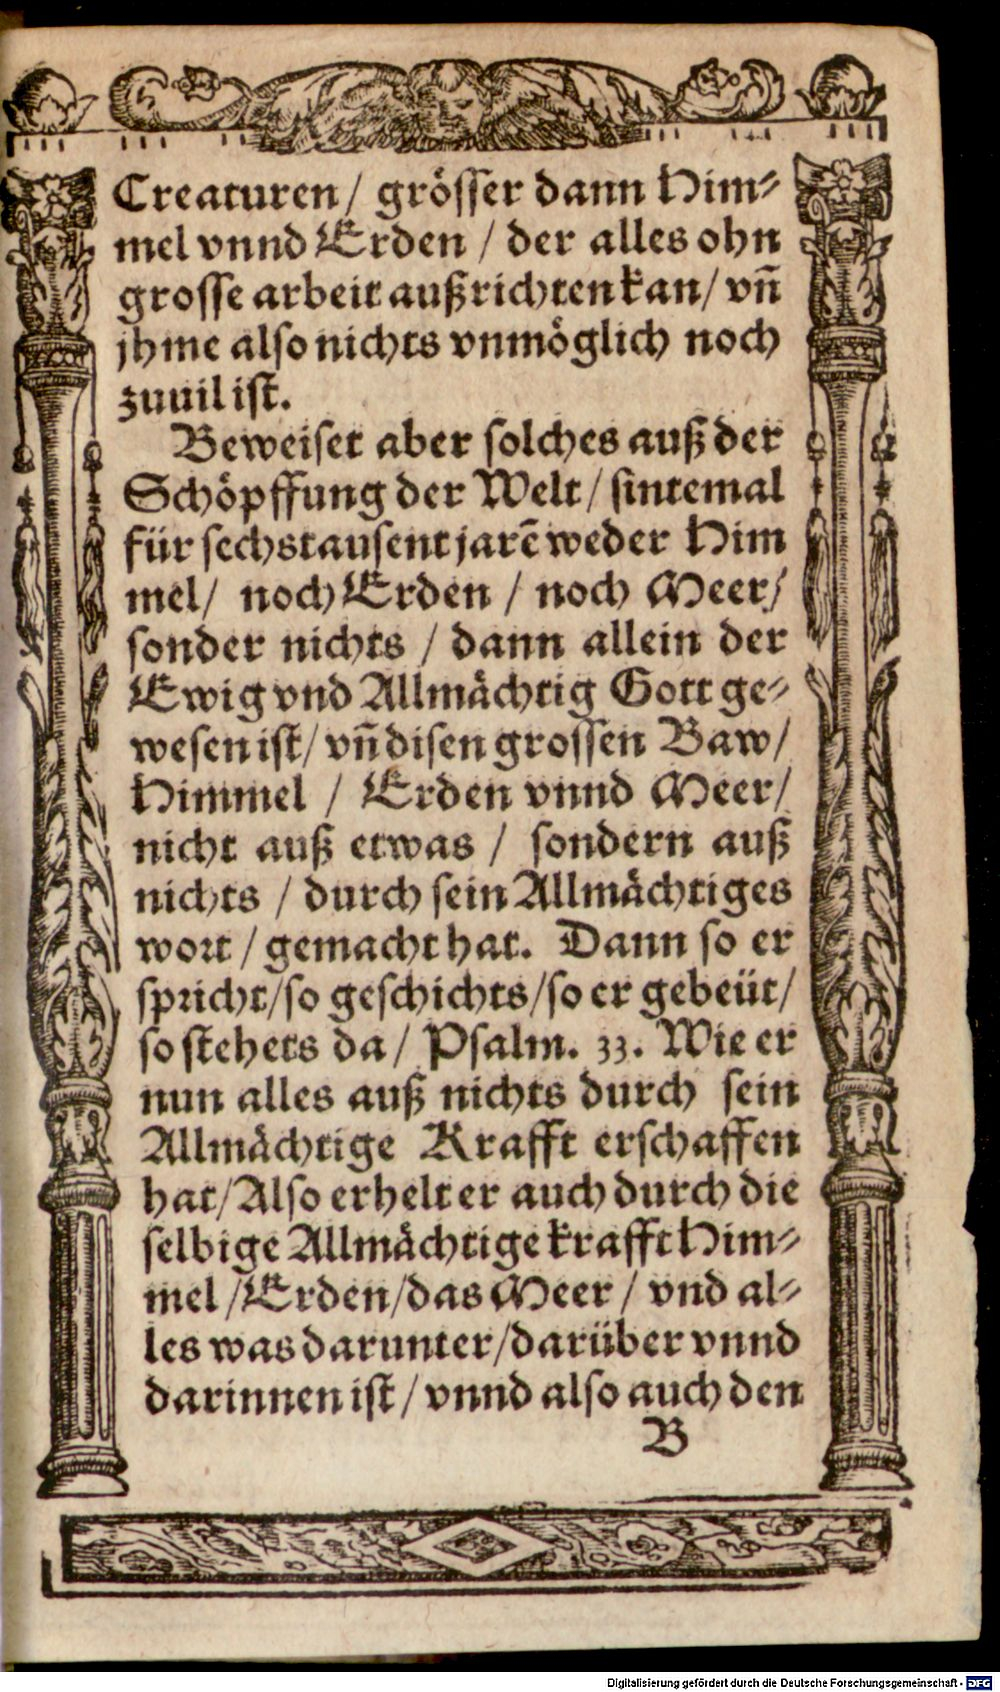 Creaturen/ grösser dann Him⸗
mel vnnd Erden / der alles ohn
grosse arbeit außrichten kan/ vñ
jhme also nichts vnmöglich noch
zuuil ist.
Beweiset aber solches auß der
Schöpffung der Welt/ sintemal
für sechstausent jarẽ weder Him
mel/ noch Erden / noch Meer/
sonder nichts / dann allein der
Ewig vnd Allmächtig Gott ge⸗
wesen ist/ vñ disen grossen Baw/
Himmel / Erden vnnd Meer/
nicht auß etwas / sondern auß
nichts / durch sein Allmächtiges
wort / gemacht hat. Dann so er
spricht/so geschichts/so er gebeüt/
so stehets da/ Psalm. 33. Wie er
nun alles auß nichts durch sein
Allmächtige Krafft erschaffen
hat/Also erhelt er auch durch die
selbige Allmächtige krafft Him⸗
mel /Erden/das Meer / vnd al⸗
les was darunter/darüber vnnd
darinnen ist / vnnd also auch den
B
Digitalisierung gefördert durch die Deutsche Forschungsgemeinschaft - DFG